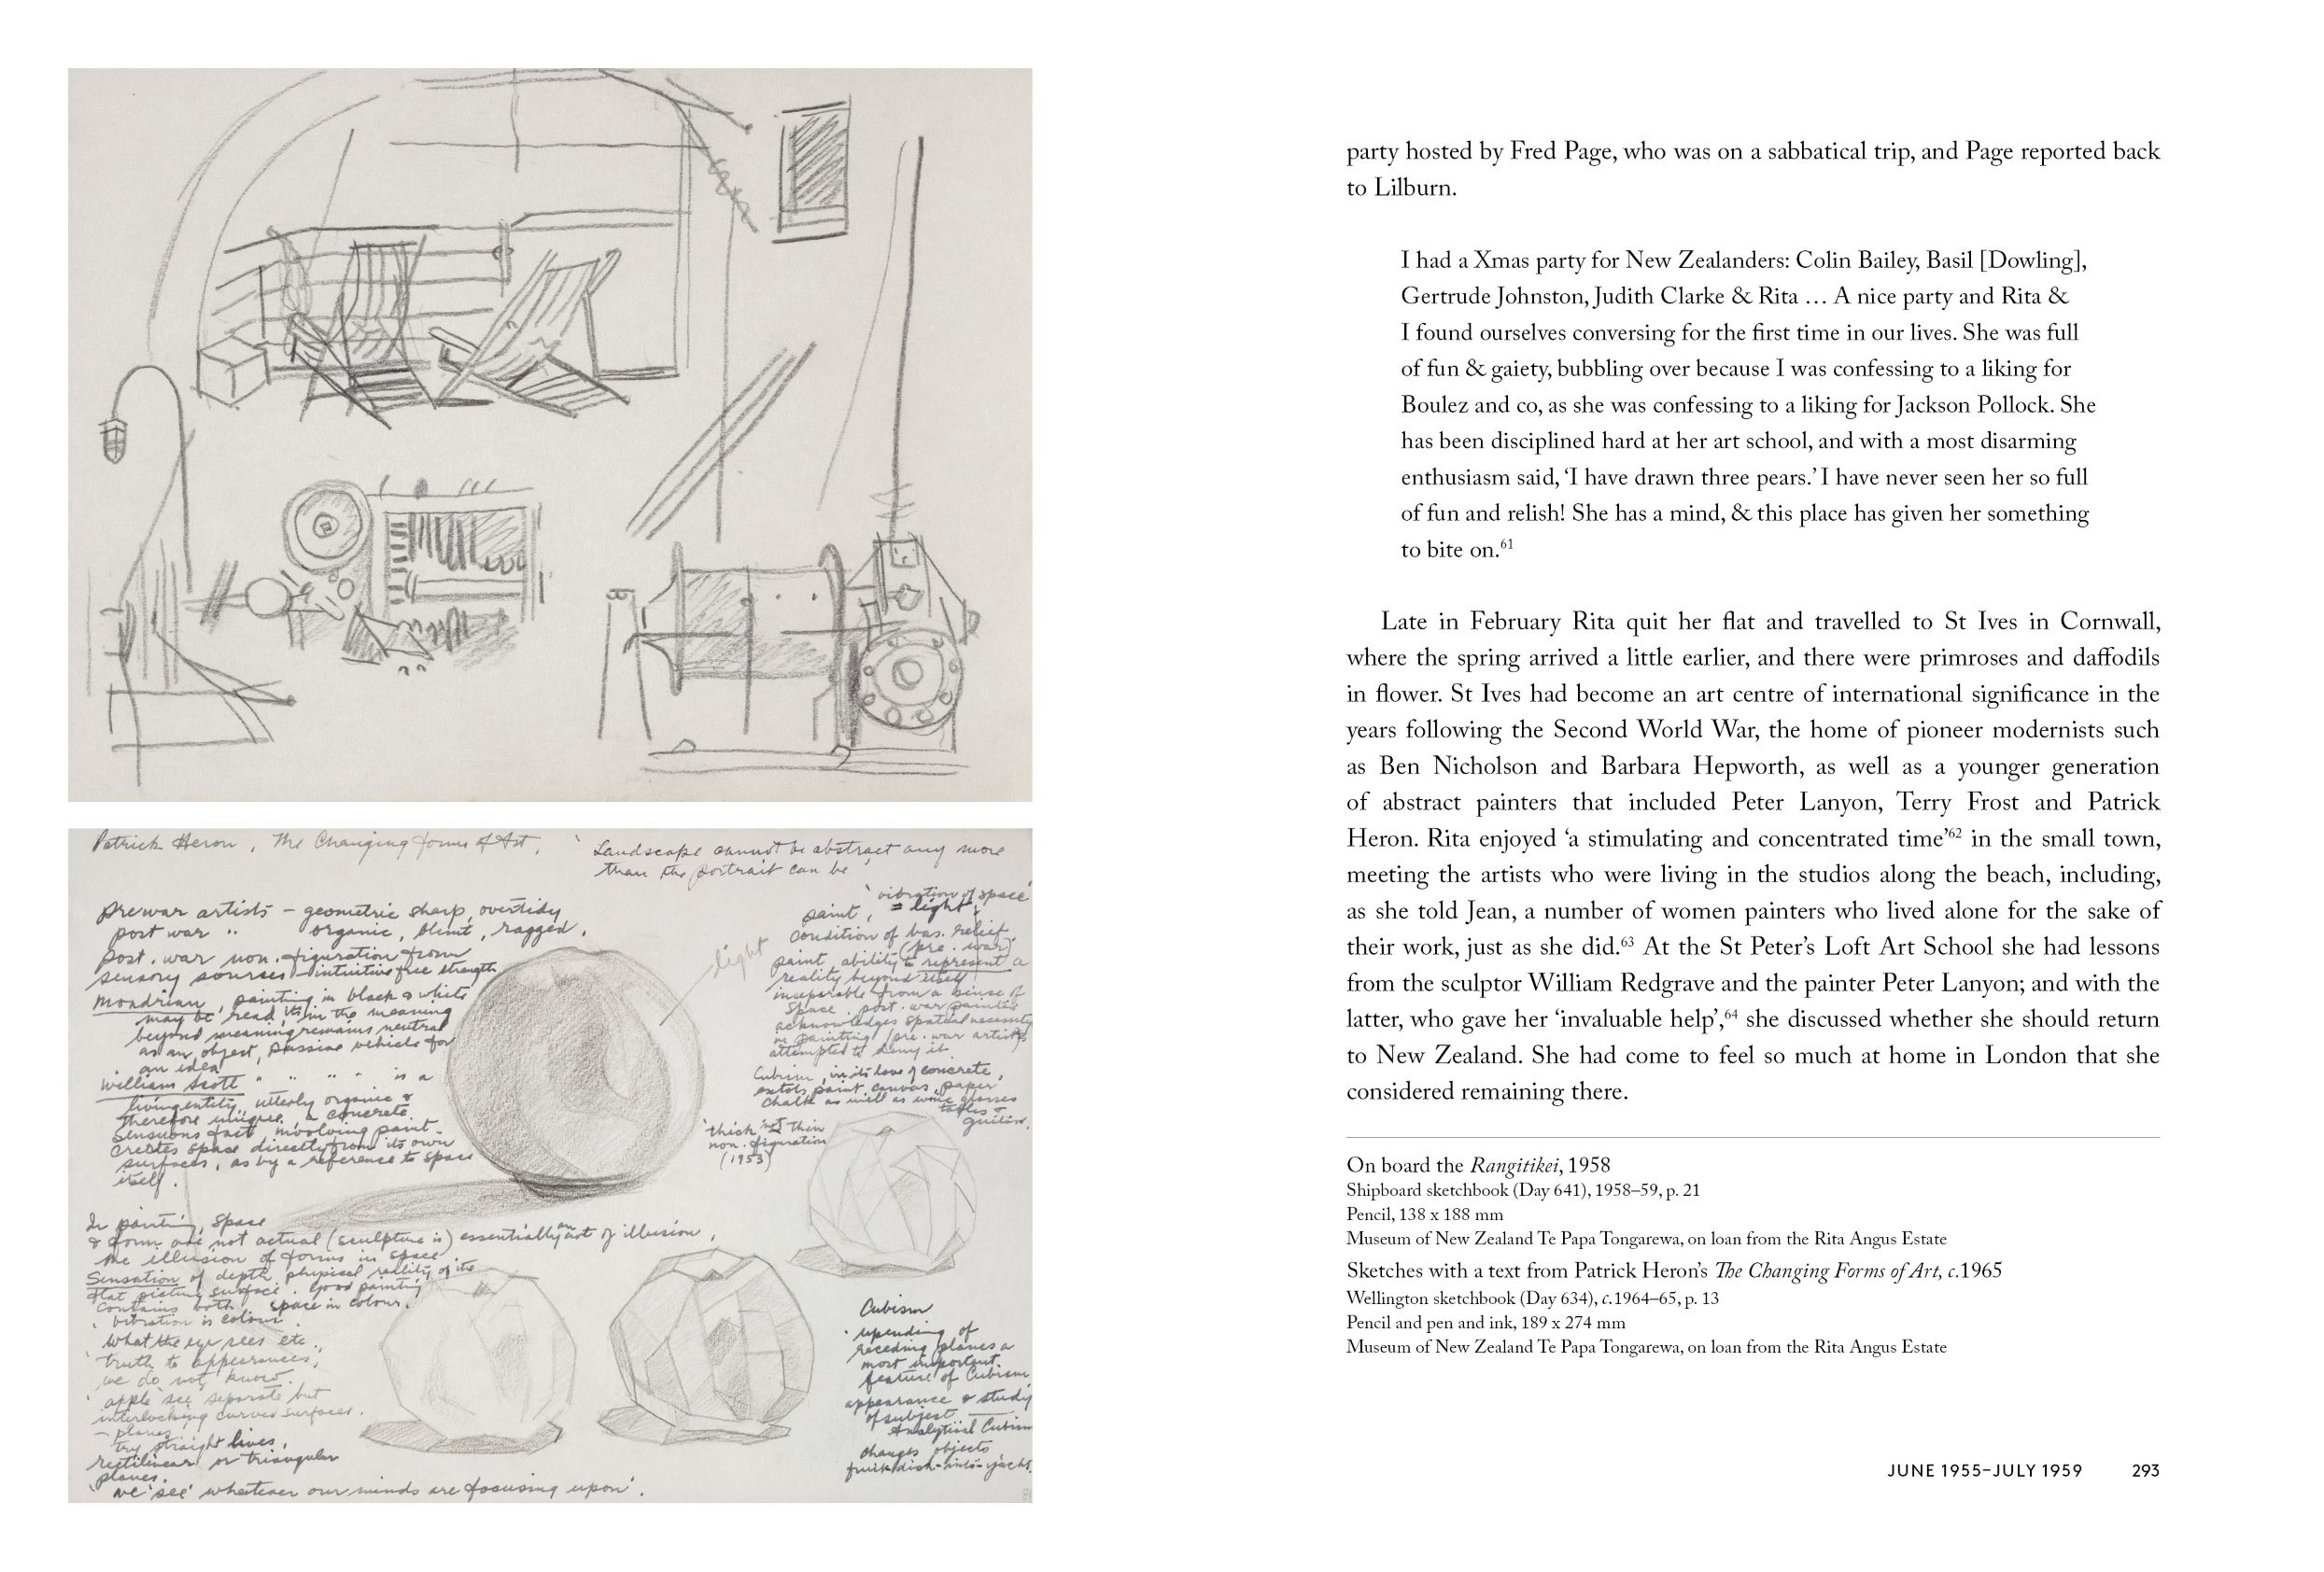 Patrick Heron, The Changing forms of Art.
'Landscape cannot be abstract any more
than the portrait can be'
prewar artists – geometric sharp, overtidy
post war " organic, blunt, ragged.
post-war non-figuration from
sensory sources – intuitive free strength
Mondrian, painting in black & white
may be 'read', its in the meaning
beyond meaning remains neutral
as an object, passive vehicle for
an idea
William Scott " " " " is a
living entity, utterly organic &
therefore unique. a concrete
sensuous fact involving paint.
creates space directly from its own
surfaces, as by a reference to space
itself.
light
'vibration of space'
paint, = light'
condition of bas. relief.
(pre. war)
paint, ability to represent a
reality beyond itself
inseparable from a sense of
space. post. war painter
acknowledges spatial necessity
in painting (pre. war artists
attempted to deny it.
Cubism, in its love of concrete,
extols paint, canvas, paper
chalk as well as wine glasses
tables &
guitars.
'thick not thin
non. figuration
(1953)
In painting, space
& form are not actual (sculpture is) essentially an art of illusion,
the illusion of forms in space.
Sensation of depth, physical reality of its
flat picture surface. good painting
contains both. space in colour.
'vibration is colour'
'what the eye sees etc.,
'truth to appearances,'
we do not know.
'apple' see separate but
interlocking curved surfaces.
– planes.
try straight lines,
rectilinear or triangular
planes.
'we 'see' whatever our minds are focusing upon'.
Cubism
upending of
receding planes a
most important
feature of Cubism
appearance & study
of subject
Analytical Cubism
changes objects
fruit dish-into-yacht.
party hosted by Fred Page, who was on a sabbatical trip, and Page reported back
to Lilburn.
I had a Xmas party for New Zealanders: Colin Bailey, Basil [Dowling],
Gertrude Johnston, Judith Clarke & Rita … A nice party and Rita &
I found ourselves conversing for the first time in our lives. She was full
of fun & gaiety, bubbling over because I was confessing to a liking for
Boulez and co, as she was confessing to a liking for Jackson Pollock. She
has been disciplined hard at her art school, and with a most disarming
enthusiasm said, ‘I have drawn three pears.’ I have never seen her so full
of fun and relish! She has a mind, & this place has given her something
to bite on.61
Late in February Rita quit her flat and travelled to St Ives in Cornwall,
where the spring arrived a little earlier, and there were primroses and daffodils
in flower. St Ives had become an art centre of international significance in the
years following the Second World War, the home of pioneer modernists such
as Ben Nicholson and Barbara Hepworth, as well as a younger generation
of abstract painters that included Peter Lanyon, Terry Frost and Patrick
Heron. Rita enjoyed ‘a stimulating and concentrated time’62 in the small town,
meeting the artists who were living in the studios along the beach, including,
as she told Jean, a number of women painters who lived alone for the sake of
their work, just as she did.63 At the St Peter’s Loft Art School she had lessons
from the sculptor William Redgrave and the painter Peter Lanyon; and with the
latter, who gave her ‘invaluable help’,64 she discussed whether she should return
to New Zealand. She had come to feel so much at home in London that she
considered remaining there.
On board the Rangitikei, 1958
Shipboard sketchbook (Day 641), 1958–59, p. 21
Pencil, 138 x 188 mm
Museum of New Zealand Te Papa Tongarewa, on loan from the Rita Angus Estate
Sketches with a text from Patrick Heron’s The Changing Forms of Art, c.1965
Wellington sketchbook (Day 634), c.1964–65, p. 13
Pencil and pen and ink, 189 x 274 mm
Museum of New Zealand Te Papa Tongarewa, on loan from the Rita Angus Estate
JUNE 1955–JULY 1959 293